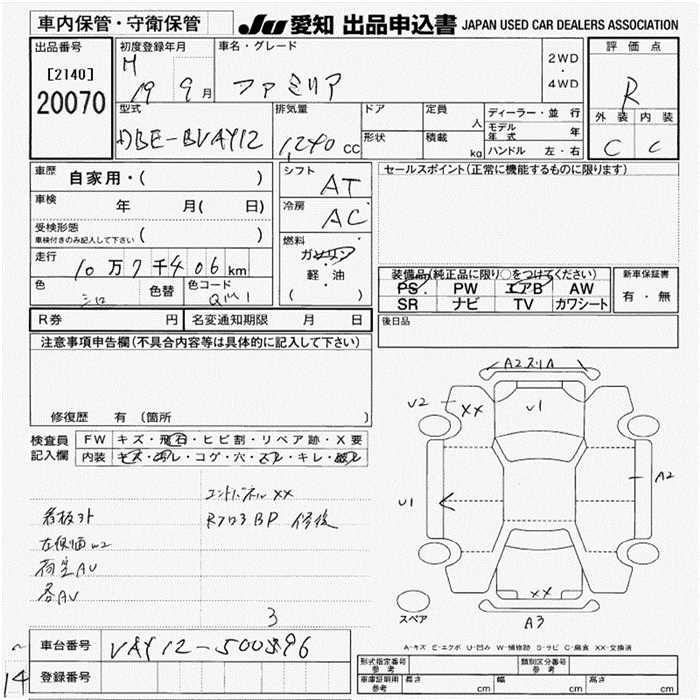 車内保管・守衛保管
JU 愛知 出品申込書 JAPAN USED CAR DEALERS ASSOCIATION
出品番号
[2140]
20070
初度登録年月
H 19 9月
車名・グレード
ファミリア
2WD
・
4WD
評価点
R
外装 内装
C C
型式
DBE-BVAY12
排気量
1,240 CC
ドア
形状
定員
人
積載
kg
ディーラー・並 行
モデル年式 年
ハンドル 左・右
車歴
自家用・( )
車検
年 月( 日)
受検形態
車検付きのみ記入して下さい ( )
走行
10万7千406km
色
シロ
色替
色コード
QM1
シフト
AT
冷房
AC
燃料
ガソリン
・
軽・油
( )
セールスポイント(正常に機能するものに限ります)
装備品(純正品に限り○をつけてください)
PS PW エアB AW
SR ナビ TV カワシート
新車保証書
有・無
R券 円
名変通知期限 月 日
後日品
注意事項申告欄(不具合内容等は具体的に記入して下さい)
修復歴 有 (箇所 )
検査員
記入欄
FW キズ・飛石・ヒビ割・リペア跡・X要
内装 キズ・汚レ・コゲ・穴・スレ・キレ・
エンドパネルXX
看板外 Rフロア BP 修後
左側面W2
荷室AU
各AU
3
A2スリA
U2
XX
U1
A2
U1
XX
A3
スペア
A-キズ E-エクボ U-凹み W-補修跡 S-サビ C-腐食 XX-交換済
車台番号
VAY12-500596
登録番号
〜
14
形式指定番号
参考
類別区分番号
参考
車庫証明用
参考
長さ cm
幅 cm
高さ cm